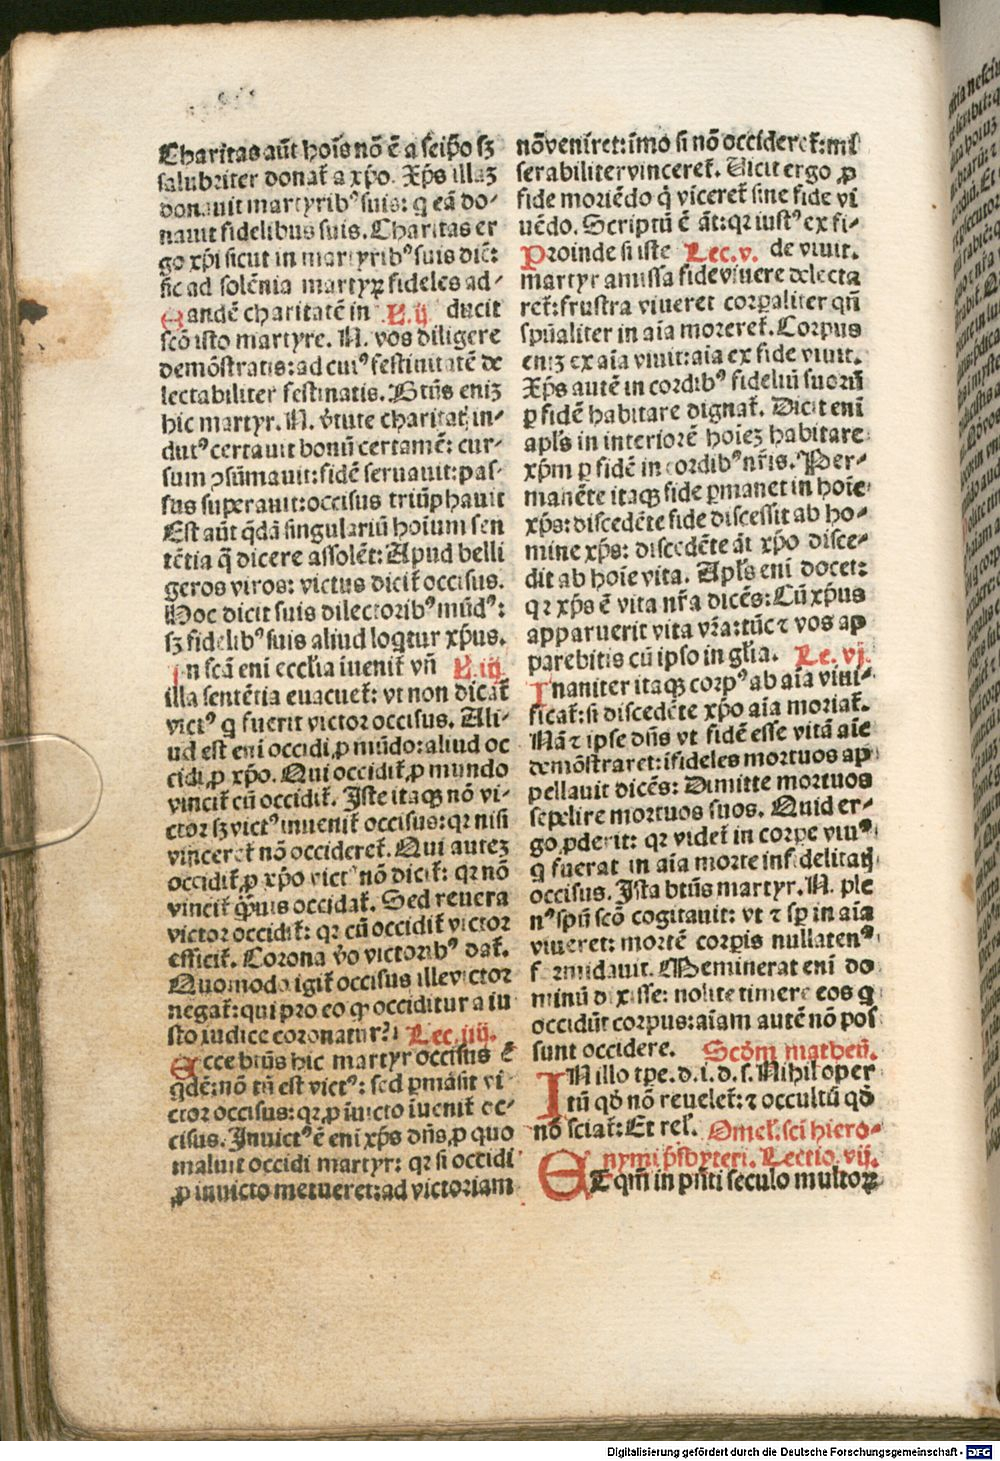 Charitas aūt hoīs nō ē a seip̄o sꝫ
salubriter donat᷑ a xp̄o. Xp̄s illaꝫ
donauit martyribꝰ suis: q eā do-
nauit fidelibus suis. Charitas er
go xp̄i sicut in martyribꝰ suis dic̄:
sic ad solēnia martyꝝ fideles ad-
Eandē charitatē in L. ij ducit
scō isto martyre. N. vos diligere
demōstratis: ad cuiꝰ festiuitatē de
lectabiliter festinatis. Btūs eniꝫ
hic martyr. N. v̄tute charitatꝭ in-
dutꝰ certauit bonū certamē: cur-
sum ꝯsūmauit: fidē seruauit: pas-
sus superauit: occisus triūphauit
Est aūt q̄dā singulariū hoīum sen
tētia q̄ dicere assolēt: Apud belli
geros viros: victus dicit᷑ occisus.
Hoc dicit suis dilectoribꝰ mūdꝰ:
sꝫ fidelibꝰ suis aliud loqtur xp̄us.
In scā eni eccl'ia iuenit᷑ vn̄ L. iij.
illa sentētia euacuet᷑: vt non dicat᷑
victꝰ q fuerit victor occisus. Ali-
ud est eni occidi ꝓ mūdo: aliud oc
cidi ꝓ xp̄o. Qui occidit᷑ ꝓ mundo
vincit᷑ cū occidit᷑. Iste itaqꝫ nō vi-
ctor sꝫ victꝰ inuenit᷑ occisus: qꝛ nisi
vinceret᷑ nō occideret᷑. Qui auteꝫ
occidit᷑ ꝓ xp̄o victꝰ nō dicit᷑: qꝛ nō
vincit᷑ q̄ꝫuis occidat᷑. Sed reuera
victor occidit᷑: qꝛ cū occidit᷑ victor
efficit᷑. Corona v̄o victoribꝰ dat᷑.
Quomodo igit᷑ occisus ille victor
negat᷑: qui pro eo ꝙ occiditur a iu
sto iudice coronatur? Lec. iiij.
Ecce btūs hic martyr occisus ē
qdē: nō tn̄ est victꝰ: sed ꝑmāsit vi-
ctor occisus: qꝛ ꝓ īuicto īuenit᷑ oc-
cisus. Inuictꝰ ē eni xp̄s dn̄s, ꝓ quo
maluit occidi martyr: qꝛ si occidi
ꝓ inuicto metueret: ad victoriam
nō veniret: imo si nō occideret᷑: mi
serabiliter vinceret᷑. Uicit ergo ꝓ
fide moriēdo q̄ viceret᷑ sine fide vi
uēdo. Scriptū ē āt: qꝛ iustꝰ ex fi-
Proinde si iste Lec. v. de viuit.
martyr amissa fide viuere delecta
ret᷑: frustra viueret corꝑaliter qn̄
spūaliter in aīa moreret᷑. Corpus
eniꝫ ex aīa viuit: aīa ex fide viuit.
Xp̄s autē in cordibꝰ fideliū suorū
ꝑ fidē habitare dignat᷑. Dicit eni
apl's in interiorē hoieꝫ habitare
xp̄m ꝑ fidē in cordibꝰ nr̄is. Per-
manēte itaqꝫ fide ꝑmanet in hoīe
xp̄s: discedēte fide discessit ab ho-
mine xp̄s: discedēte āt xp̄o disce-
dit ab hoīe vita. Apl's eni docet:
qꝛ xp̄s ē vita nr̄a dicēs: Cū xp̄us
apparuerit vita vr̄a: tūc ⁊ vos ap
parebitis cū ipso in gl'ia. Le. vj.
Inaniter itaqꝫ corpꝰ ab aīa viui-
ficat᷑: si discedēte xp̄o aīa moriat᷑.
Nā ⁊ ipse dn̄s vt fidē esse vitā aīe
demōstraret: īfideles mortuos ap
pellauit dicēs: Dimitte mortuos
sepelire mortuos suos. Quid er-
go ꝓderit: qꝛ videt᷑ in corꝑe viuꝰ
q fuerat in aīa morte infidelitatꝭ
occisus. Ista btūs martyr. N. ple
nꝰ spū scō cogitauit: vt ⁊ sꝑ in aīa
viueret: mortē corꝑis nullatenꝰ
formidauit. Meminerat eni do
minū dixisse: nolite timere eos q
occidūt corpus: aīam autē nō pos
sunt occidere. Scdm̄ mathen̄.
IN illo tꝑe. d. i. d. s. Nihil oper
tū qd̄ nō reuelet᷑: ⁊ occultū qd̄
nō sciat᷑: Et rel'. Omel'. sci hiero-
nymi p̄sbyteri. Lectio. vij.
ET qm̄ in pn̄ti seculo multoꝝ